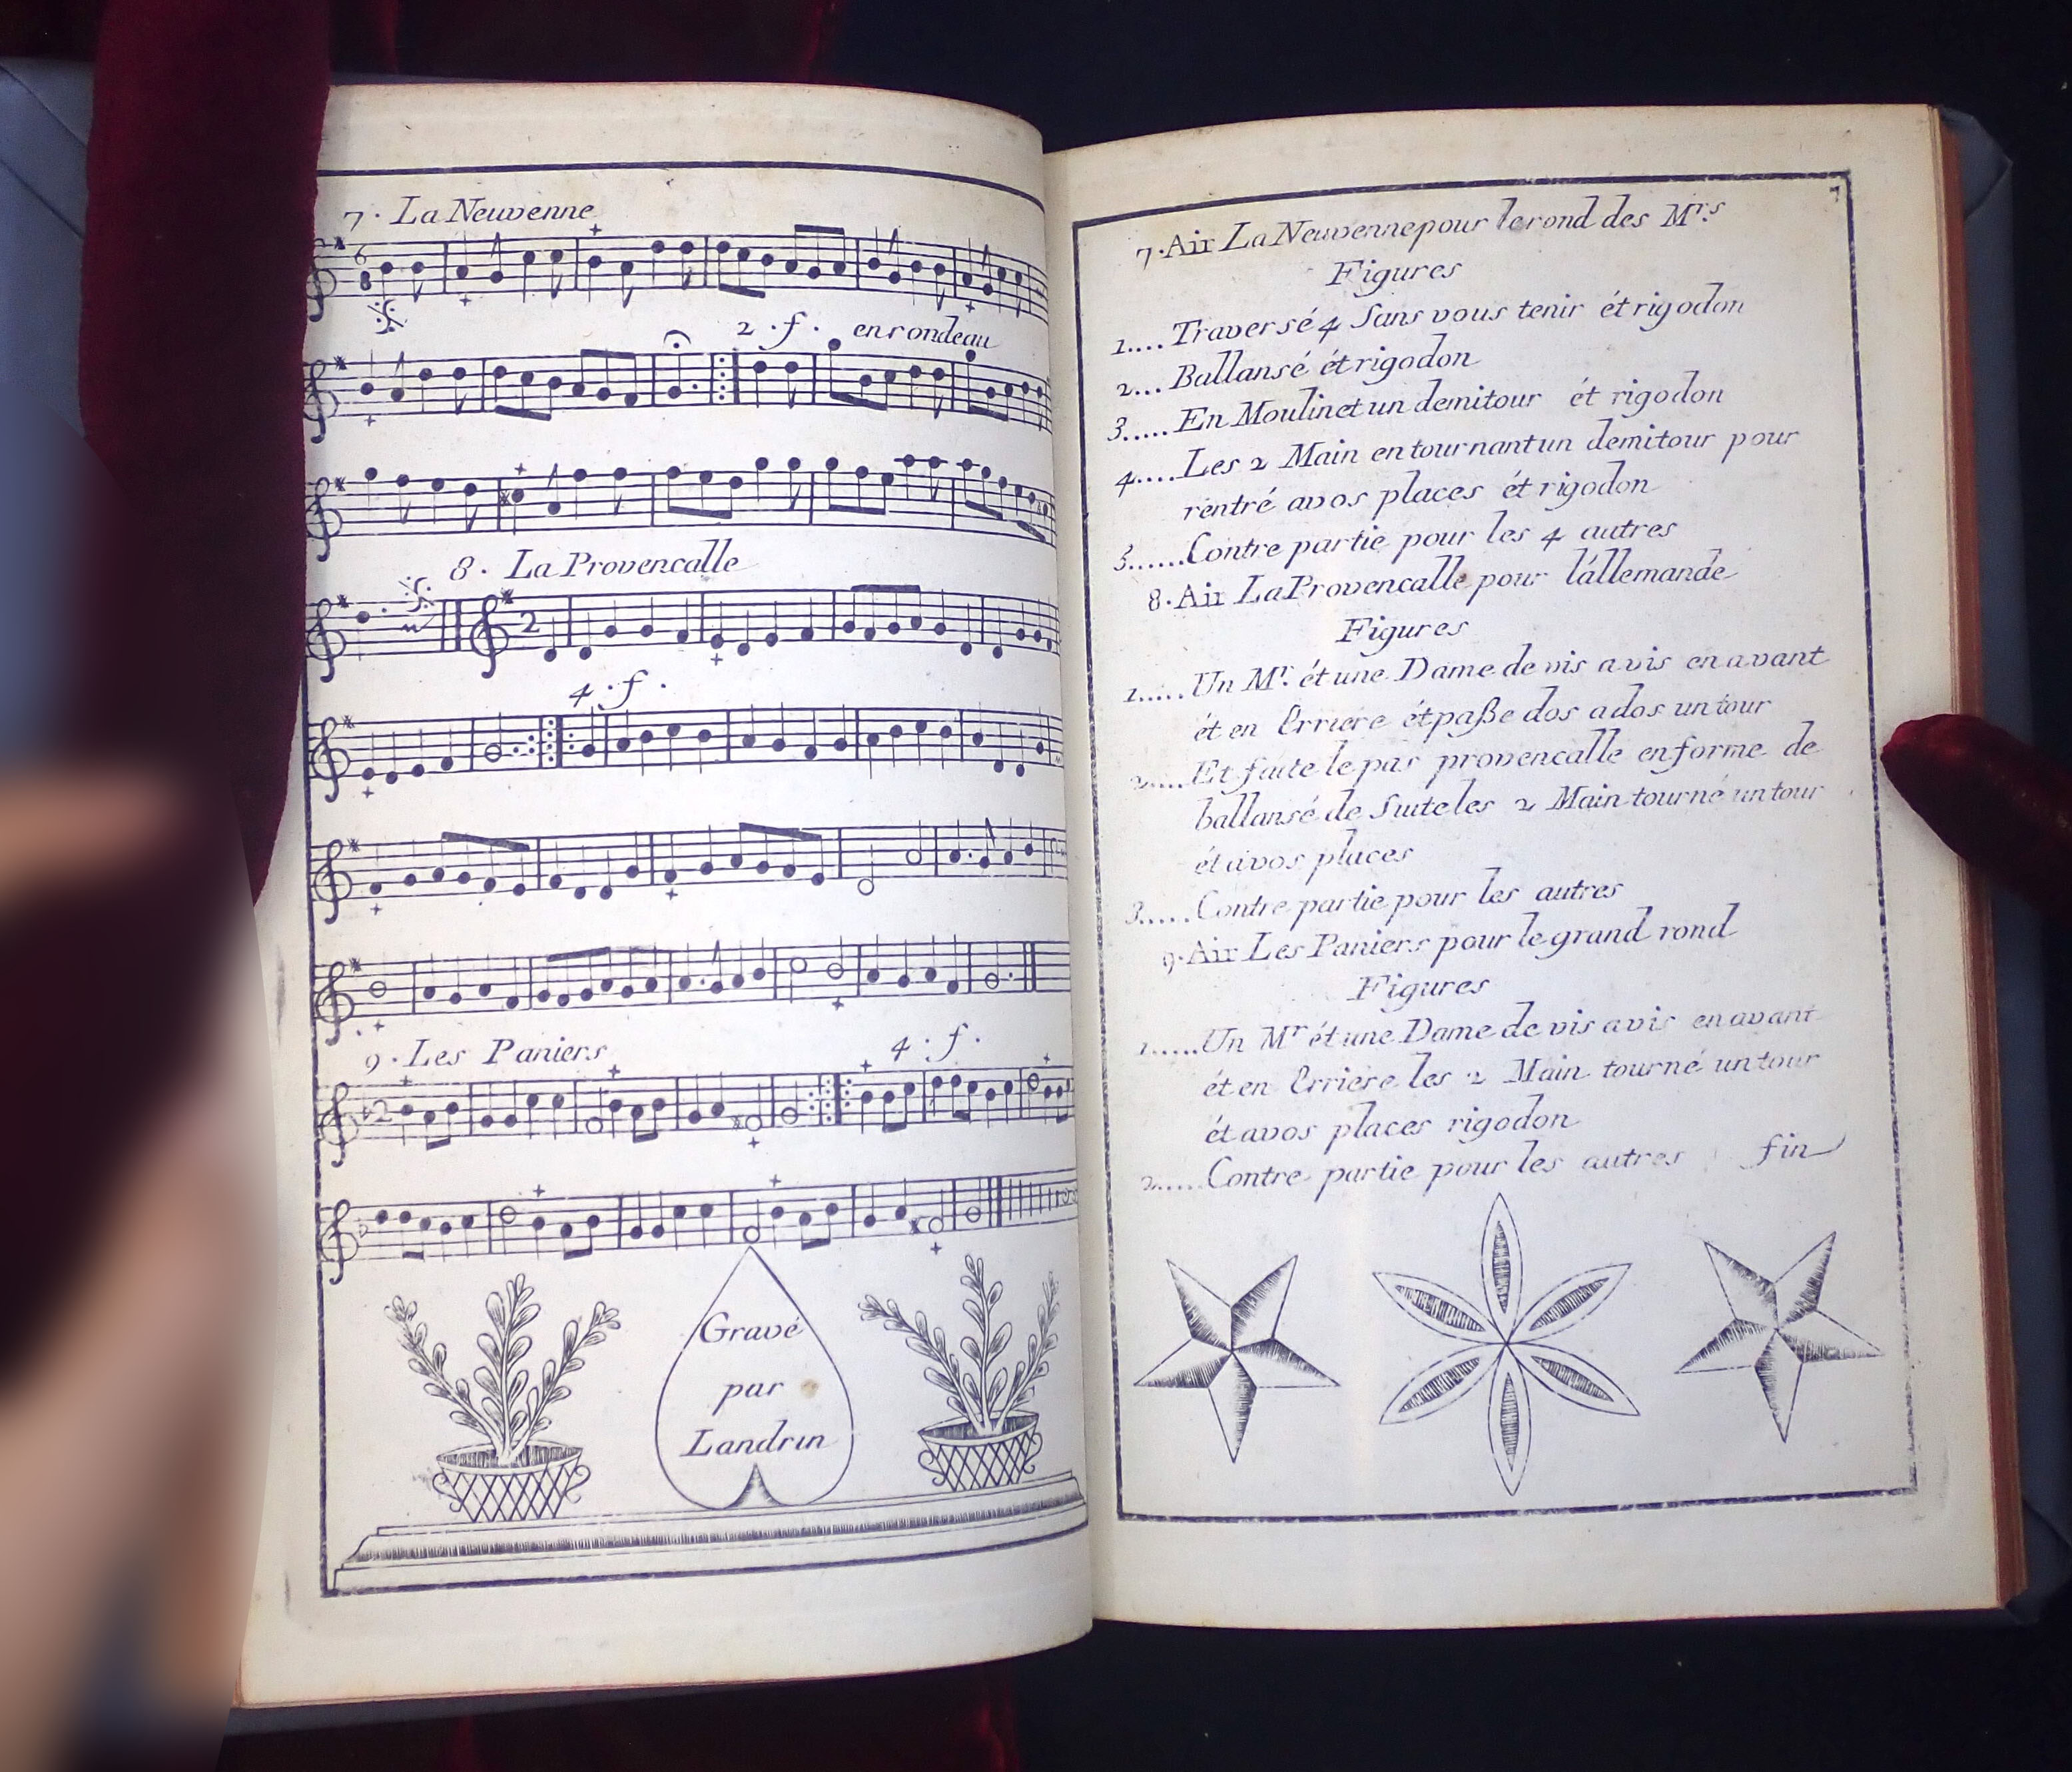 7. La Neuvenne
6
8
2. f. en rondeau
8. La Provencalle
2
4. f.
9. Les Paniers 4. f.
2
Gravé
par
Landrin
7
7. Air La Neuvenne pour le rond des Mrs
Figures
1.... Traversé 4 Sans vous tenir ét rigodon
2... Ballansé ét rigodon
3..... En Moulinet un demitour ét rigodon
4.... Les 2 Main en tournant un demitour pour
rentré a vos places ét rigodon
5...... Contre partie pour les 4 autres
8. Air La Provencalle pour l'allemande
Figures
1..... Un Mr. ét une Dame de vis a vis en avant
ét en Erriere ét paße dos a dos un tour
2..... Et faite le pas provencalle en forme de
ballansé de Suite les 2 Main tourné un tour
ét a vos places
3..... Contre partie pour les autres
9. Air Les Paniers pour le grand rond
Figures
1...... Un Mr ét une Dame de vis a vis en avant
ét en Erriere les 2 Main tourné un tour
ét a vos places rigodon
2..... Contre partie pour les autres fin